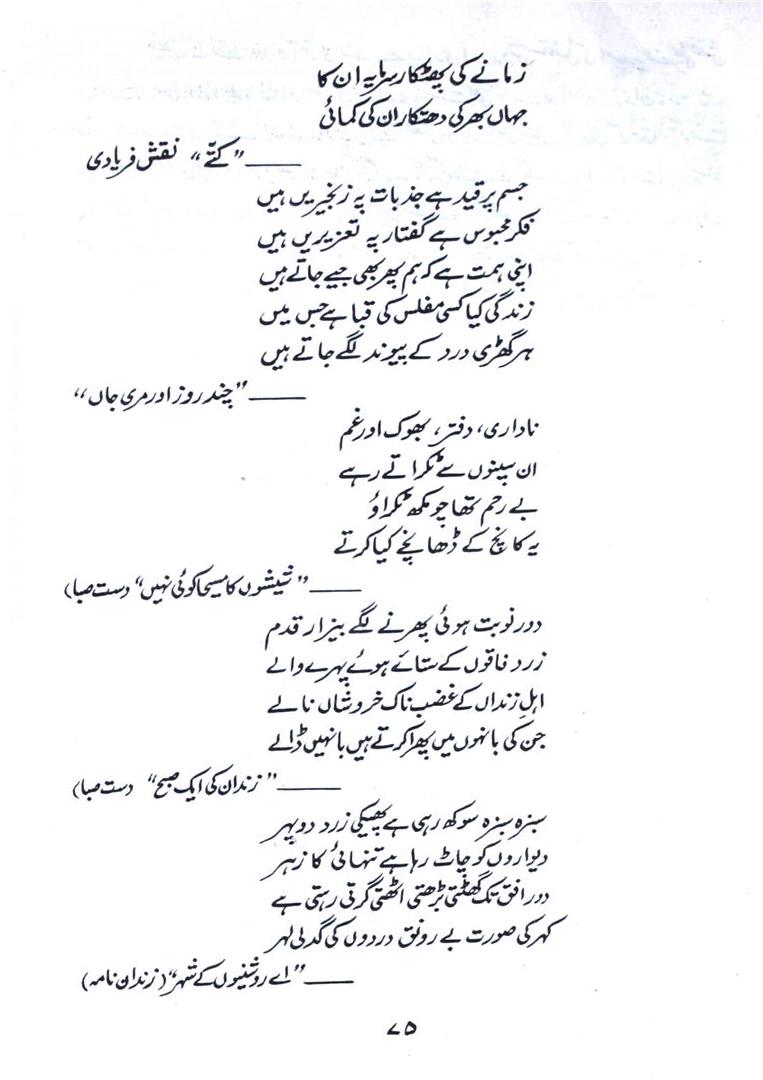 زمانے کی پھٹکار سرمایہ ان کا
جہاں بھر کی دھتکار ان کی کمائی
——— “کتے” نقش فریادی
جسم پر قید ہے جذبات پہ زنجیریں ہیں
فکر محبوس ہے گفتار پہ تعزیریں ہیں
اپنی ہمت ہے کہ ہم پھر بھی جیے جاتے ہیں
زندگی کیا کسی مفلس کی قبا ہے جس میں
ہر گھڑی درد کے پیوند لگے جاتے ہیں
——— “چند روز اور مری جاں”
ناداری، دفتر، بھوک اور غم
ان سپنوں سے ٹکراتے رہے
بے رحم تھا چومکھ ٹکراؤ
یہ کانچ کے ڈھانچے کیا کرتے
——— “شیشوں کا مسیحا کوئی نہیں” دست صبا)
دور نوبت ہوئی پھرنے لگے بیزار قدم
زرد فاقوں کے ستائے ہوئے پہرے والے
اہلِ زنداں کے غضب ناک خروشاں نالے
جن کی بانہوں میں پھرا کرتے ہیں بانہیں ڈالے
——— “زندان کی ایک صبح” دست صبا)
سبزہ سبزہ سوکھ رہی ہے پھیکی زرد دوپہر
دیواروں کو چاٹ رہا ہے تنہائی کا زہر
دور افق تک گھٹتی بڑھتی اٹھتی گرتی رہتی ہے
کہر کی صورت بے رونق دردوں کی گدلی لہر
——— “اے روشنیوں کے شہر” (زندان نامہ)
۷۵